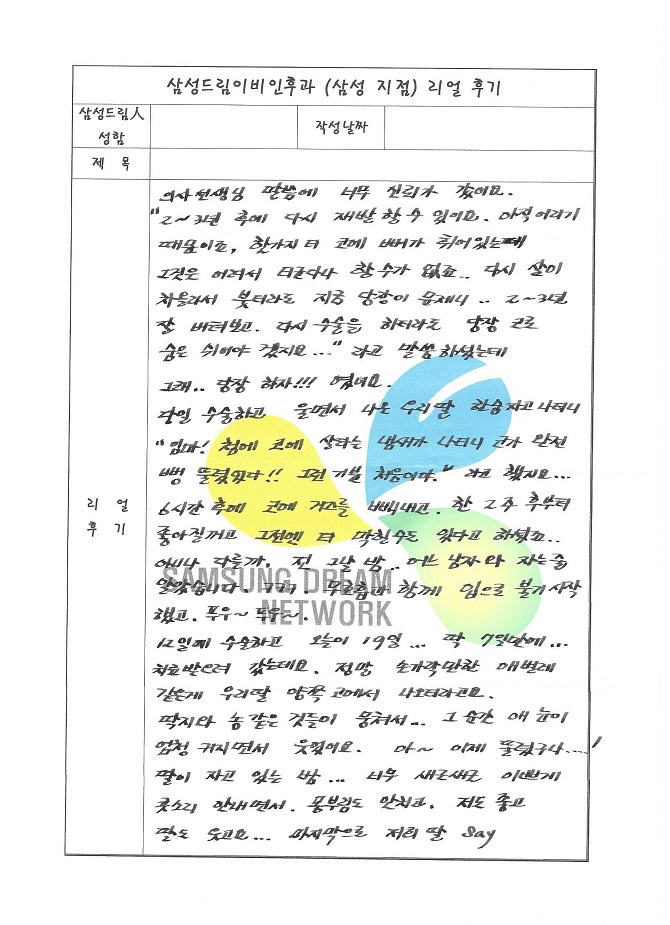 삼성드림이비인후과 (삼성 지점) 리얼 후기
삼성드림人
성함
작성날짜
제 목
리 얼
후 기
의사선생님 말씀에 너무 신뢰가 갔어요.
"2~3년 후에 다시 재발할 수 있어요. 아직 어리기
때문이죠, 한가지 더 코에 뼈가 휘어있는데
그것은 어려서 더군다나 할 수가 없죠.. 다시 살이
차올라서 붓더라도 지금 당장이 문제니.. 2~3년
잘 버텨보고. 다시 수술을 하더라도 당장 코로
숨은 쉬어야 겠지요..." 라고 말씀하셨는데
그래.. 당장 하자!!! 였어요.
당일 수술하고 울면서 나온 우리딸 한숨자고 나더니
"엄마! 첨에 코에 살타는 냄새가 나더니 코가 완전
뻥 뚫렸었다!! 그런 기분 처음이야." 라고 했지요...
6시간 후에 코에 거즈를 빼내고. 한 2주 후부터
좋아질꺼고 그전엔 더 막힐수도 있다고 하셨죠...
아니나 다를까. 전 그날 밤.. 어느 남자와 자는줄
알았습니다. 그려. 무호흡과 함께 입으로 불기시작
했고. 푸우~ 두유~.
12일에 수술하고 오늘이 19일... 딱 7일만에...
치료받으러 갔는데요. 정말 손가락만한 애벌레
같은게 우리딸 양쪽 코에서 나오더라고요.
딱지와 농같은 것들이 뭉쳐서... 그 순간 애 눈이
엄청 커지면서 웃었어요. 아~ 이제 뚫렸구나....!
딸이 자고 있는 밤... 너무 새근새근 이쁘게
콧소리 안내면서. 몸부림도 안치고. 저도 좋고
딸도 웃고요... 마지막으로 저희 딸 say
SAMSUNG DREAM
NETWORK